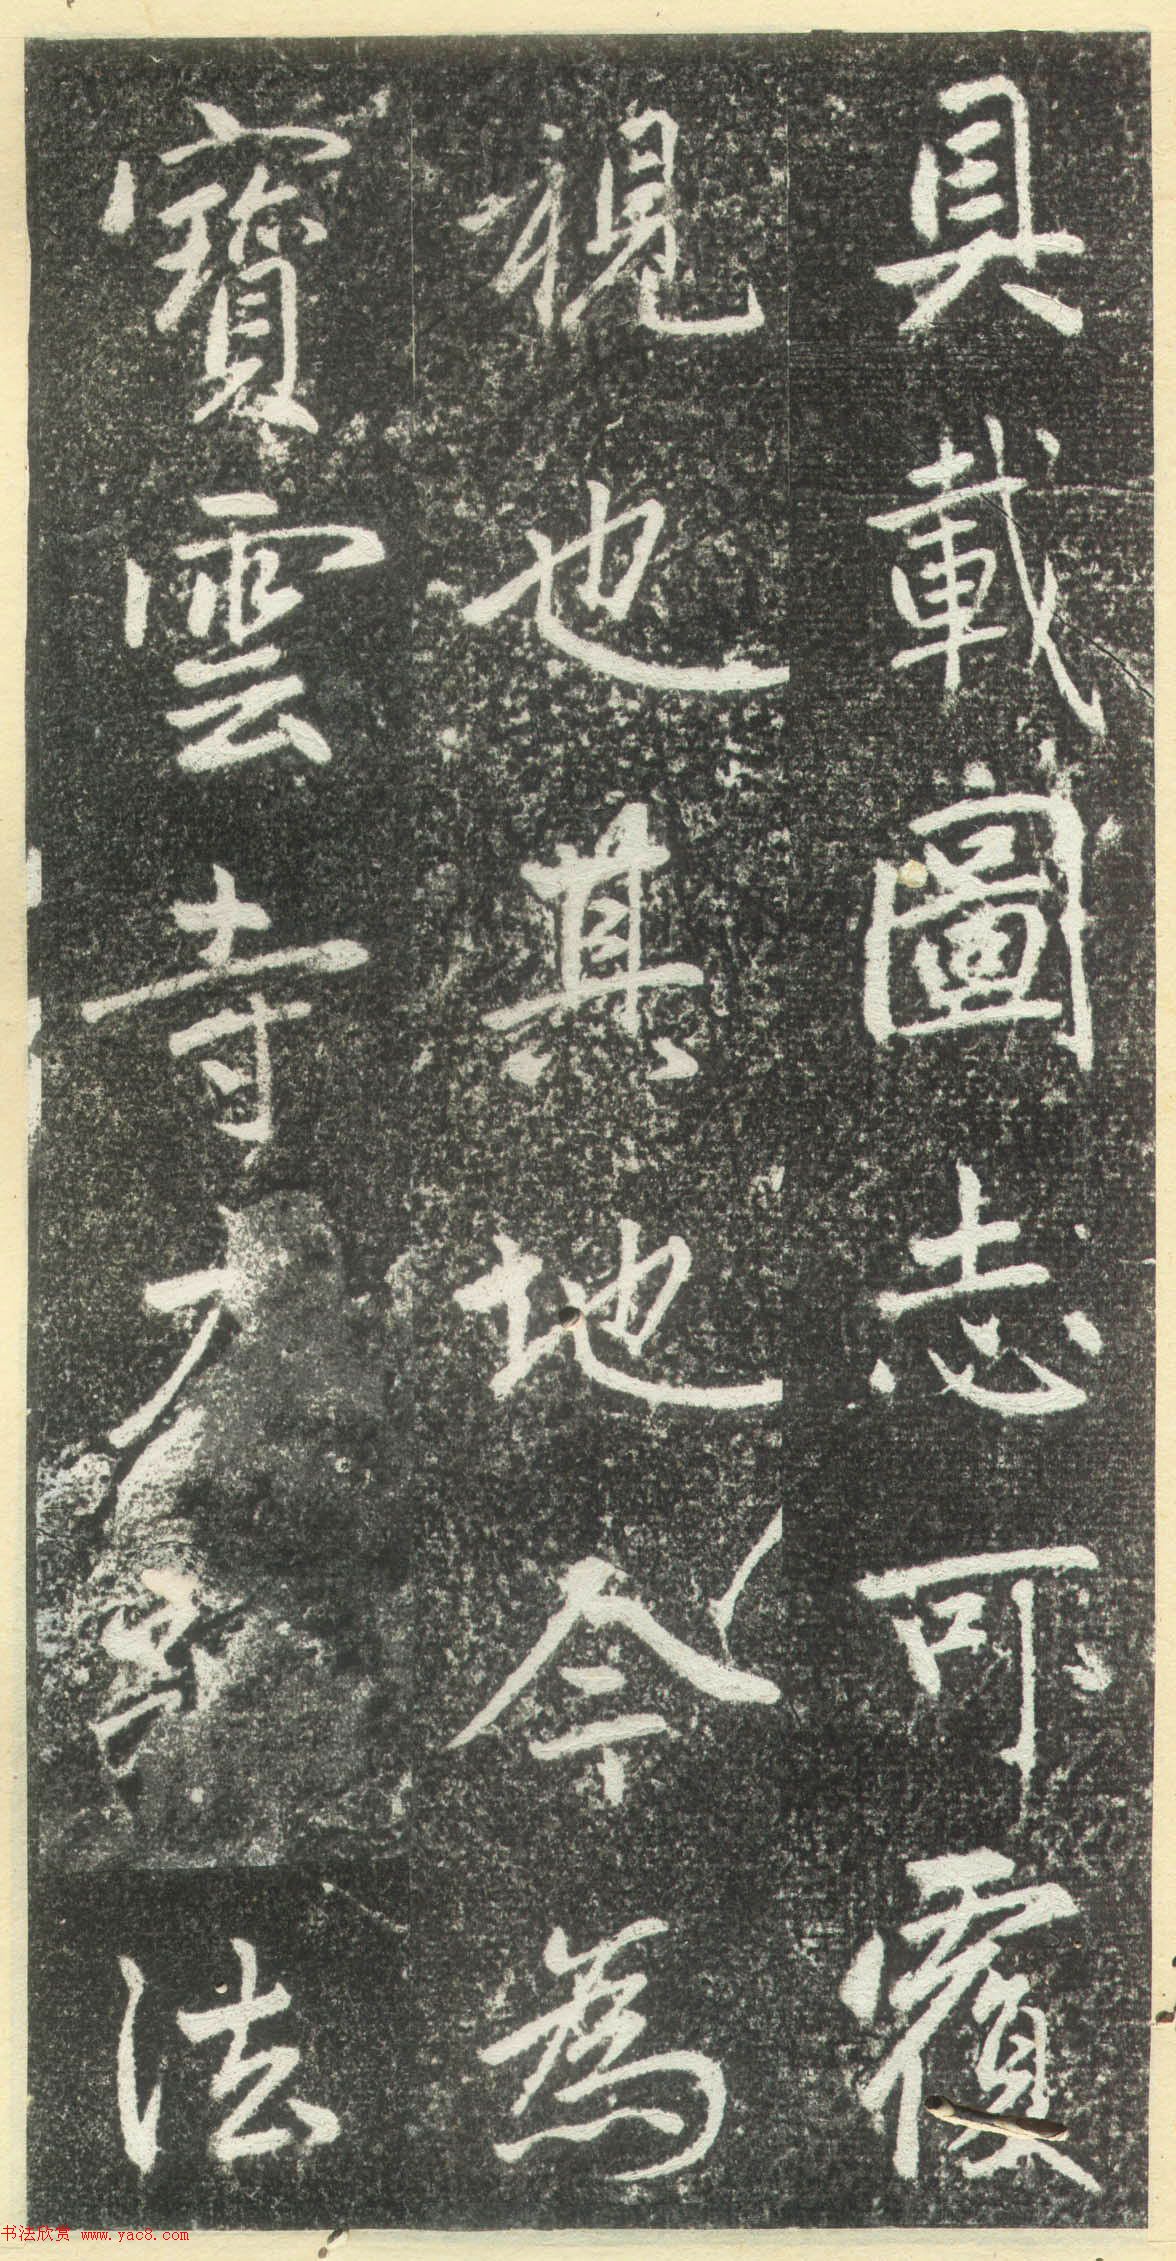 具載圖志可覆
視也其地今為
寶雲寺方法
书法欣赏 www.yac8.com